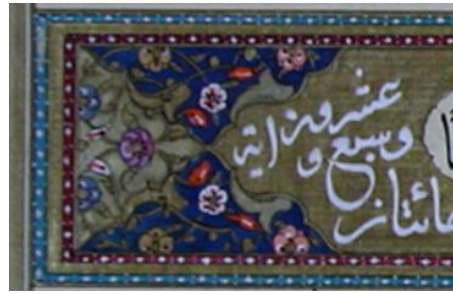 مائتان وسبع وعشرون اية